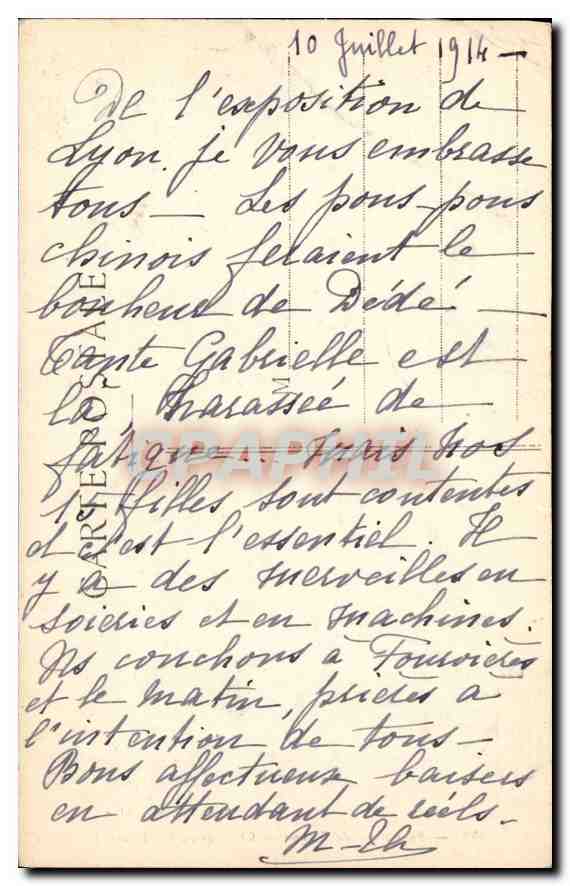 10 Juillet 1914 –
De l'exposition de
Lyon je vous embrasse
tous – Les pous-pous
chinois feraient le
bonheur de Dédé –
Tante Gabrielle est
là, harassée de
fatigue. Mais nos
filles sont contentes
et c'est l'essentiel. Il
y a des merveilles en
soieries et en machines.
Ns couchons à Fourvières
et le matin, prières à
l'intention de tous –
Bons affectueux baisers
en attendant de réels.
M-Th
CARTE POSTALE
CPAPHIL